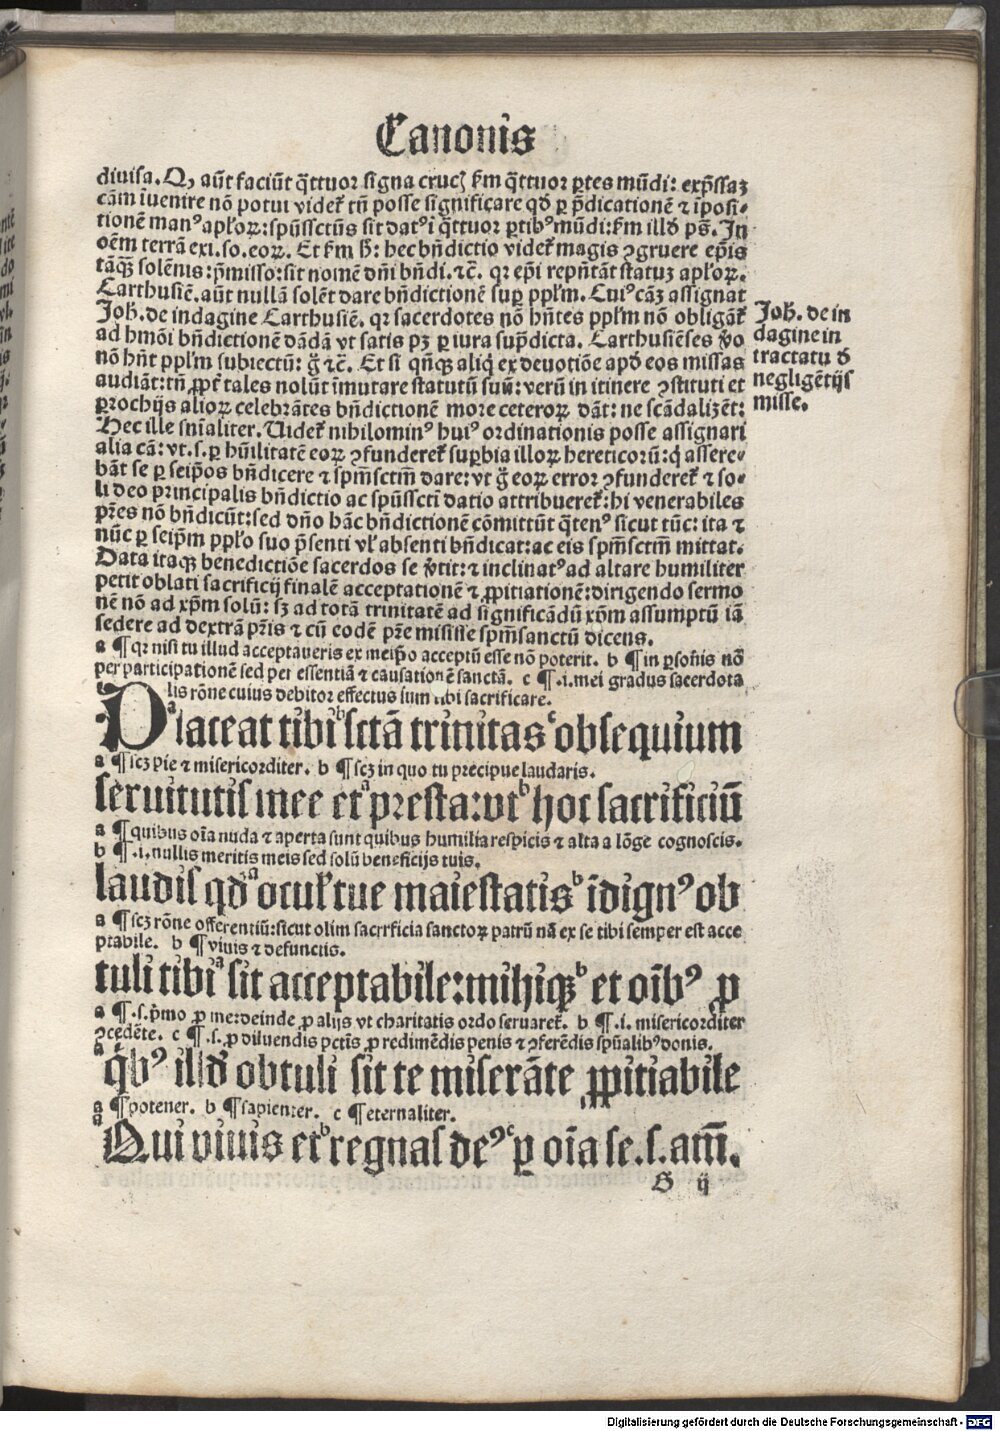 Canonis
diuisa. Q, aūt faciūt q̄ttuor signa cruc̨ ẜm q̄ttuor ꝑtes mūdi: exp̄ssaꝫ
cām īuenire nō potui videt᷑ tn̄ posse significare qđ ꝑ p̄dicationē ⁊ īposi⸗
tionē manꝰ apl̓oꝝ: spūssctūs sit datꝰ ī q̄ttuor ꝑtibꝰ mūdi: ẜm illđ ps̄. In
oēm terrā exi. so. eoꝝ. Et ẜm ħ: hec bn̄dictio videt᷑ magis ꝯgruere ep̄is
tāqꝫ solēnis: p̄misso: sit nomē dn̄i bn̄di. ⁊c̄. qꝛ ep̄i repn̄tāt statuꝫ apl̓oꝝ.
Carthusiē. aūt nullā solēt dare bn̄dictionē suꝑ ppl̓m. Cuiꝰ cāꝫ assignat
Joħ. de indagine Carthusiē. qꝛ sacerdotes nō hn̄tes ppl̓m nō obligāt᷑
ad hm̄oi bn̄dictionē dādā vt satis pꝫ ꝑ iura sup̄dicta. Carthusiēses v̓o
nō hn̄t ppl̓m subiectū: g̊ ⁊c̄. Et si qn̄qꝫ aliq̇ ex deuotiōe apđ eos missas
audiāt: tn̄ ꝓpt᷑ tales nolūt īmutare statutū suū: verū in itinere ꝯstituti et
ꝑrochijs alioꝝ celebrātes bn̄dictionē more ceteroꝝ dāt: ne scādalizēt:
Hec ille snīaliter. Uidet᷑ nihilominꝰ huiꝰ ordinationis posse assignari
alia cā: vt. s. ꝑ hūilitatē eoꝝ ꝯfunderet᷑ suꝑbia illoꝝ hereticorū: q̇ assere⸗
bāt se ꝑ seip̄os bn̄dicere ⁊ spm̄sctm̄ dare: vt g̊ eoꝝ error ꝯfunderet᷑ ⁊ so⸗
li deo principalis bn̄dictio ac spūssctī datio attribueret᷑: hi venerabiles
pr̄es nō bn̄dicūt: sed dn̄o hāc bn̄dictionē cōmittūt q̄tenꝰ sicut tūc: ita ⁊
nūc ꝑ seip̄m ppl̓o suo p̄senti vl̓ absenti bn̄dicat: ac eis spm̄sctm̄ mittat.
Data itaqꝫ benedictiōe sacerdos se v̓tit: ⁊ inclinatꝰ ad altare humiliter
petit oblati sacrificij finalē acceptationē ⁊ ꝓpitiationē: dirigendo sermo
nē nō ad xp̄m solū: sꝫ ad totā trinitatē ad significādū xp̄m assumptū iā
sedere ad dextrā pr̄is ⁊ cū eodē pr̄e misisse spm̄sanctū dicens.
Joħ. de in
dagine in
tractatu đ
negligētijs
misse.
a ¶ qꝛ nisi tu illud acceptaueris ex meip̄o acceptū esse nō poterit. b ¶ in ꝑsonīs nō
per participationē sed per essentiā ⁊ causationē sanctā. c ¶ .i. mei gradus sacerdota
lis rōne cuius debitor effectus sum tibi sacrificare.
Placeat tibi sctā trinitas obsequium
a ¶ scꝫ pie ⁊ misericorditer. b ¶ scꝫ in quo tu precipue laudaris.
seruitutis mee et presta: vt hoc sacrificiū
a ¶ quibus oīa nuda ⁊ aperta sunt quibus humilia respicis ⁊ alta a lōge cognoscis.
b ¶ .i. nullis meritis meis sed solū beneficijs tuis.
laudis qđ ocul̓ tue maiestatis īdignꝰ ob
a ¶ scꝫ rōne offerentiū: sicut olim sacrificia sanctoꝝ patrū nā ex se tibi semper est acce
ptabile. b ¶ viuis ⁊ defunctis.
tuli tibi sit acceptabile: mihiqꝫ et oībꝰ ꝓ
a ¶ .s. p̄mo ꝓ me: deinde ꝓ alijs vt charitatis ordo seruaret᷑. b ¶ .i. misericorditer
ꝯcedēte. c ¶ .s. ꝓ diluendis pctīs ꝓ redimēdis penis ⁊ ꝯferēdis spūalibꝰ donis.
q̇bꝰ illđ obtuli sit te miserāte ꝓpitiabile
a ¶ potener. b ¶ sapienter. c ¶ eternaliter.
Qui viuis et regnas deꝰ ꝑ oīa se. s. am̄.
S ij
Digitalisierung gefördert durch die Deutsche Forschungsgemeinschaft - DFG